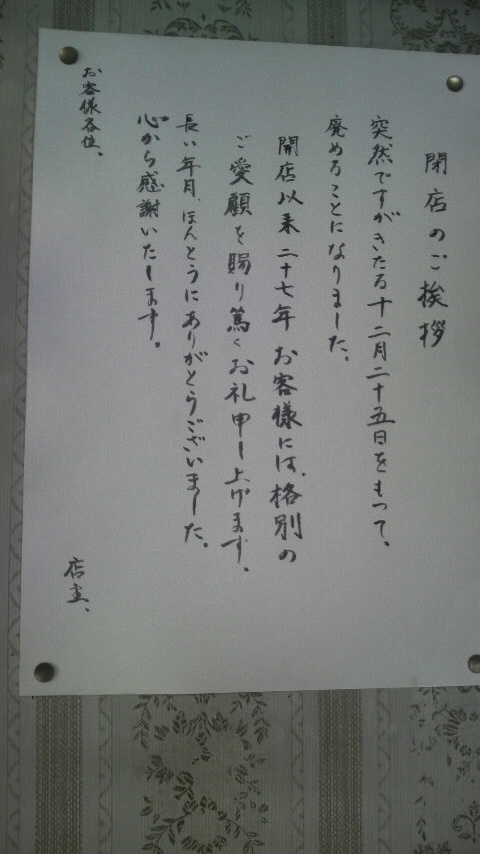 閉店のご挨拶
突然ですがきたる十二月二十五日をもって、
廃めることになりました。
開店以来二十七年お客様には、格別の
ご愛顧を賜り篤くお礼申し上げます。
長い年月、ほんとうにありがとうございました。
心から感謝いたします。
お客様各位、
店主、